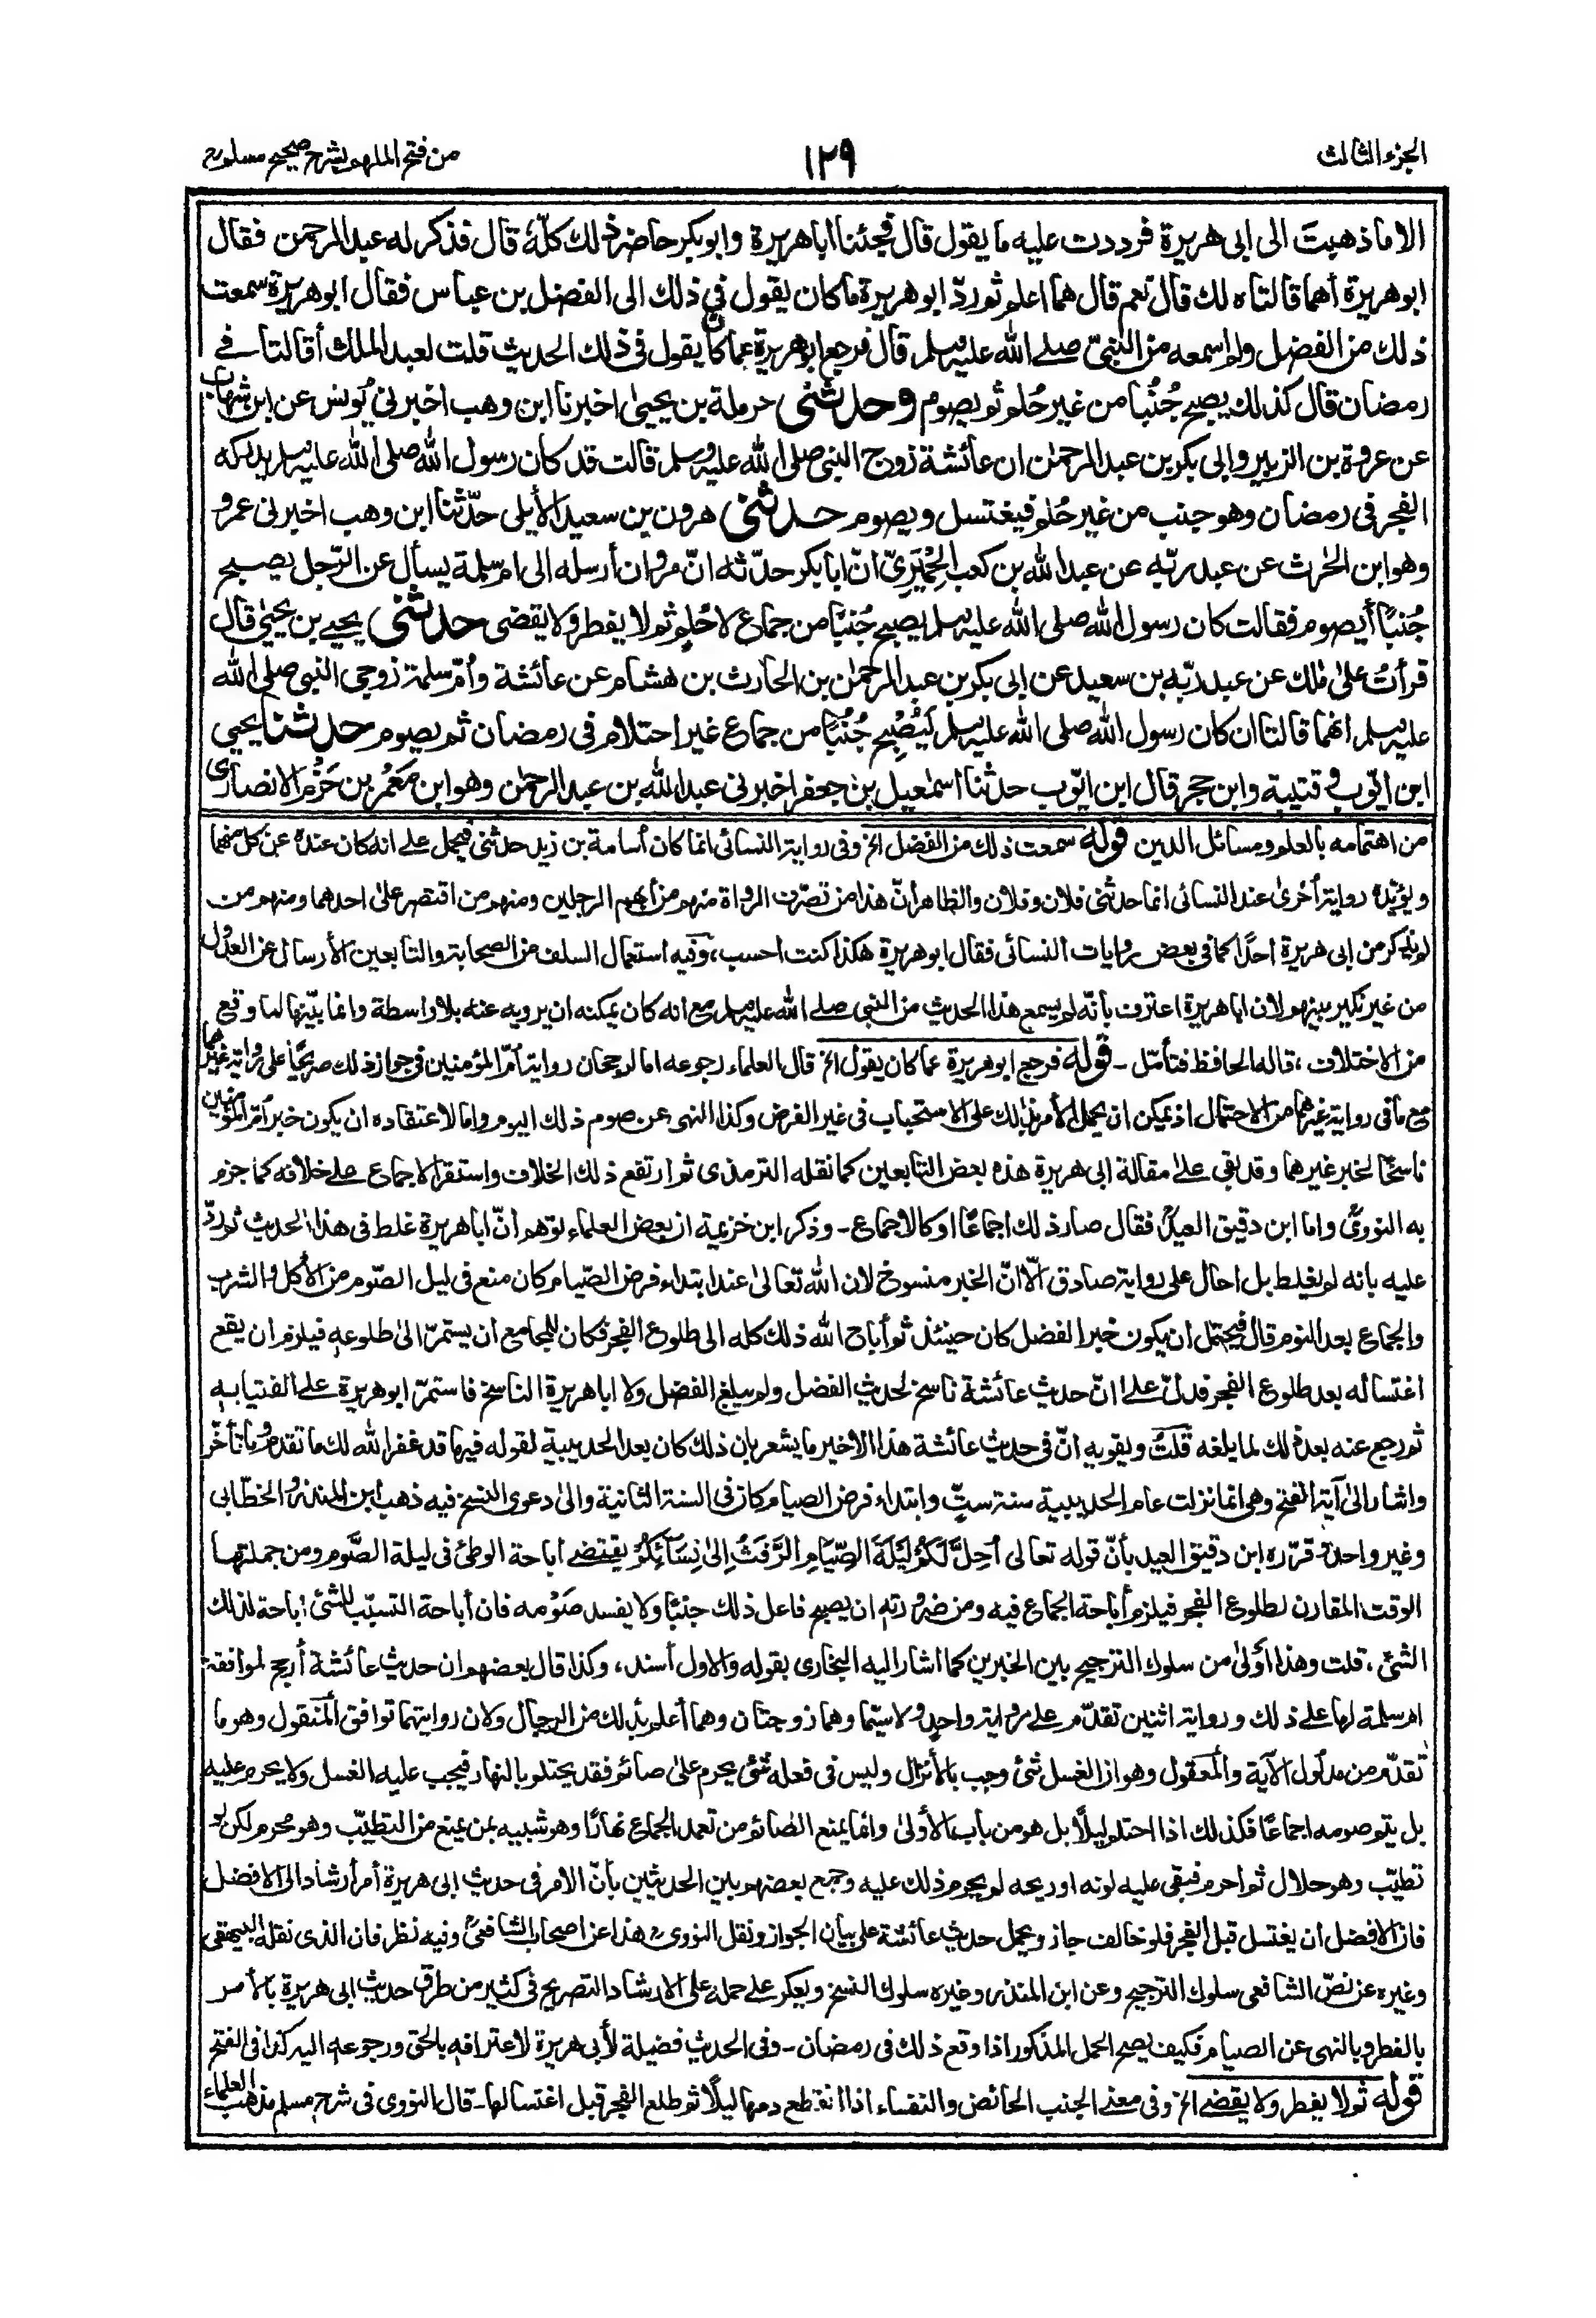 الجزء الثالث
١٢٩
من فتح الملهم بشرح صحيح مسلم
الا ما ذهبتَ الى ابى هريرة فرددت عليه ما يقول قال فجئنا ابا هريرة وابو بكر حاضر ذلك كلّه قال فذكر له عبد الرحمن فقال
ابو هريرة أهما قالتاه لك قال نعم قال هما اعلم ثم ردّ ابو هريرة ما كان يقول في ذلك الى الفضل بن عباس فقال ابو هريرة سمعت
ذلك من الفضل ولم اسمعه من النبيّ صلى الله عليه وسلم قال فرجع ابو هريرة عما كان يقول فى ذلك الحديث قلت لعبد الملك أقالتا فى
رمضان قال كذلك يصبح جُنُبًا من غير حُلم ثم يصوم وحدثنى حرملة بن يحيىٰ اخبرنا ابن وهب اخبرني يُونس عن ابن شهاب
عن عروة بن الزبير وابى بكر بن عبد الرحمٰن ان عائشة زوج النبى صلى الله عليه وسلم قالت قد كان رسول الله صلى الله عليه وسلم يدركه
الفجر فى رمضان وهو جنب من غير حُلم فيغتسل ويصوم حدثنى هرون بن سعيد الأيلى حدّثنا ابن وهب اخبرنى عمرو
وهو ابن الحٰرث عن عبد ربّه عن عبد الله بن كعب الحِمْيَرِىّ انّ ابا بكر حدّثه انّ مروان أرسله الى ام سلمة يسأل عن الرّجل يصبح
جُنبًا أيصوم فقالت كان رسول الله صلى الله عليه وسلم يصبح جُنبًا من جماع لا حُلمٍ ثم لا يفطر ولا يقضى حدثنى يحيى بن يحيىٰ قال
قرأتُ علىٰ مٰلك عن عبد ربّه بن سعيد عن ابى بكر بن عبد الرحمٰن بن الحارث بن هشام عن عائشة وأمّ سلمة زوجى النبى صلى الله
عليه وسلم انهما قالتا ان كان رسول الله صلى الله عليه وسلم لَيُصْبِح جُنُبًا من جماع غير احتلام فى رمضان ثم يصوم حدثنا يحيى
ابن ايّوب وقتيبة وابن حجر قال ابن ايّوب حدثنا اسمٰعيل بن جعفر اخبرنى عبد الله بن عبد الرحمٰن وهو ابن مَعْمَر بن حَزْم الانصارى
من اهتمامه بالعلم ومسائل الدين قوله سمعت ذلك من الفضل الخ وفى رواية النسائى انما كان أسامة بن زيد حدثنى فيحمل على انه كان عنده عن كل منهما
ويؤيّده رواية أخرىٰ عند النسائى انما حدثنى فلان وفلان والظاهر أنّ هذا من تصرّف الرواة منهم من أبهم الرجلين ومنهم من اقتصر علىٰ احدهما ومنهم من
لم يذكر من ابى هريرة احدًا كما فى بعض روايات النسائى فقال ابو هريرة هكذا كنت احسب، وفيه استعمال السلف من الصحابة والتابعين الأرسال عن العدول
من غير نكير بينهم لان ابا هريرة اعترف بأنّه لم يسمع هذا الحديث من النبى صلى الله عليه وسلم مع انه كان يمكنه ان يرويه عنه بلا واسطة وانما بيّنها لما وقع
من الاختلاف، قاله الحافظ فتأمّل - قوله فرجع ابو هريرة عما كان يقول الخ قال العلماء رجوعه اما لرجحان رواية أمّ المؤمنين فى جواز ذلك صريحًا على رواية غيرهما
مع ما فى رواية غيرهما من الاحتمال اذ يمكن ان يحمل الأمر بذلك على الاستحباب فى غير الفرض وكذا النهى عن صوم ذلك اليوم واما لاعتقاده ان يكون خبر أم المؤمنين
ناسخًا لخبر غيرهما وقد بقى على مقالة ابى هريرة هذه بعض التابعين كما نقله الترمذى ثم ارتفع ذلك الخلاف واستقر الاجماع على خلافه كما جزم
به النووىّ واما ابن دقيق العيد فقال صار ذلك اجماعًا او كالاجماع - وذكر ابن خزيمة ان بعض العلماء توهم أنّ ابا هريرة غلط فى هذا الحديث ثم ردّ
عليه بانه لم يغلط بل احال على رواية صادق الّا انّ الخبر منسوخ لان الله تعالىٰ عند ابتداء فرض الصّيام كان منع فى ليل الصّوم من الأكل والشرب
والجماع بعد النوم قال فيحتمل ان يكون خبر الفضل كان حينئذ ثم أباح الله ذلك كله الى طلوع الفجر فكان للمجامع أن يستمرّ الىٰ طلوعه فيلزم ان يقع
اغتساله بعد طلوع الفجر فدلّ على انّ حديث عائشة ناسخ لحديث الفضل ولم يبلغ الفضل ولا ابا هريرة الناسخ فاستمرّ ابو هريرة على الفتيا به
ثم رجع عنه بعد ذلك لما بلغه قلتُ ويقويه انّ فى حديث عائشة هذا الاخير ما يشعر بان ذلك كان بعد الحديبية لقوله فيها قد غفر الله لك ما تقدم وما تأخّر
واشار الىٰ آية الفتح وهى انما نزلت عام الحديبية سنة ستٍّ وابتداء فرض الصيام كان فى السنة الثانية والىٰ دعوى النسخ فيه ذهب ابن المنذر والخطّابى
وغير واحد - قرّره ابن دقيق العيد بأنّ قوله تعالى أُحِلَّ لَكُمْ لَيْلَةَ الصِّيَامِ الرَّفَثُ اِلىٰ نِسَآئِكُمْ يقتضى اباحة الوطئ فى ليلة الصَّوم ومن جملتها
الوقت المقارن لطلوع الفجر فيلزم أباحة الجماع فيه ومن ضرورته ان يصبح فاعل ذلك جنبًا ولا يفسد صَوْمه فان أباحة التسبّب للشئ اباحة لذلك
الشئ، قلت وهذا أولىٰ من سلوك الترجيح بين الخبرين كما اشار اليه البخارى بقوله والاول أسند، وكذا قال بعضهم ان حديث عائشة أرجح لموافقة
ام سلمة لها على ذلك ورواية اثنين تقدّم على رواية واحدٍ ولا سيّما وهما زوجتان وهما أعلم بذلك من الرجال ولان روايتهما توافق المنقول وهو ما
تقدّم من مدلول الآية والمعقول وهو ان الغسل شئ وجب بالأنزال وليس فى فعله شئ يحرم علىٰ صائم فقد يحتلم بالنهار فيجب عليه الغسل ولا يحرم عليه
بل يتم صومه اجماعًا فكذلك اذا احتلم ليلًا بل هو من باب الأولىٰ وانما يمنع الصائم من تعمد الجماع نهارًا وهو شبيه بمن يمنع من التطيّب وهو محرم لكن لو
تطيّب وهو حلال ثم أحرم فبقى عليه لونه او ريحه لم يحرم ذلك عليه وجمع بعضهم بين الحديثين بأنّ الامر فى حديث ابى هريرة أمر أرشاد الى الافضل
فان الافضل أن يغتسل قبل الفجر فلو خالف جاز ويحمل حديث عائشة على بيان الجواز ونقل النووى هذا عن اصحاب الشافعىّ وفيه نظر فان الذى نقله البيهقى
وغيره عن نصّ الشافعى سلوك الترجيح وعن ابن المنذر وغيره سلوك النسخ ويعكر على حمله على الارشاد التصريح فى كثير من طرق حديث ابى هريرة بالأمر
بالفطر وبالنهى عن الصيام فكيف يصح الحمل المذكور اذا وقع ذلك فى رمضان - وفى الحديث فضيلة لأبى هريرة لاعترافه بالحق ورجوعه اليه كذا فى الفتح
قوله ثم لا يفطر ولا يقضى الخ وفى معنى الجنب الحائض والنفساء اذا انقطع دمها ليلًا ثم طلع الفجر قبل اغتسالها - قال النووى فى شرح مسلم مذهب العلماء